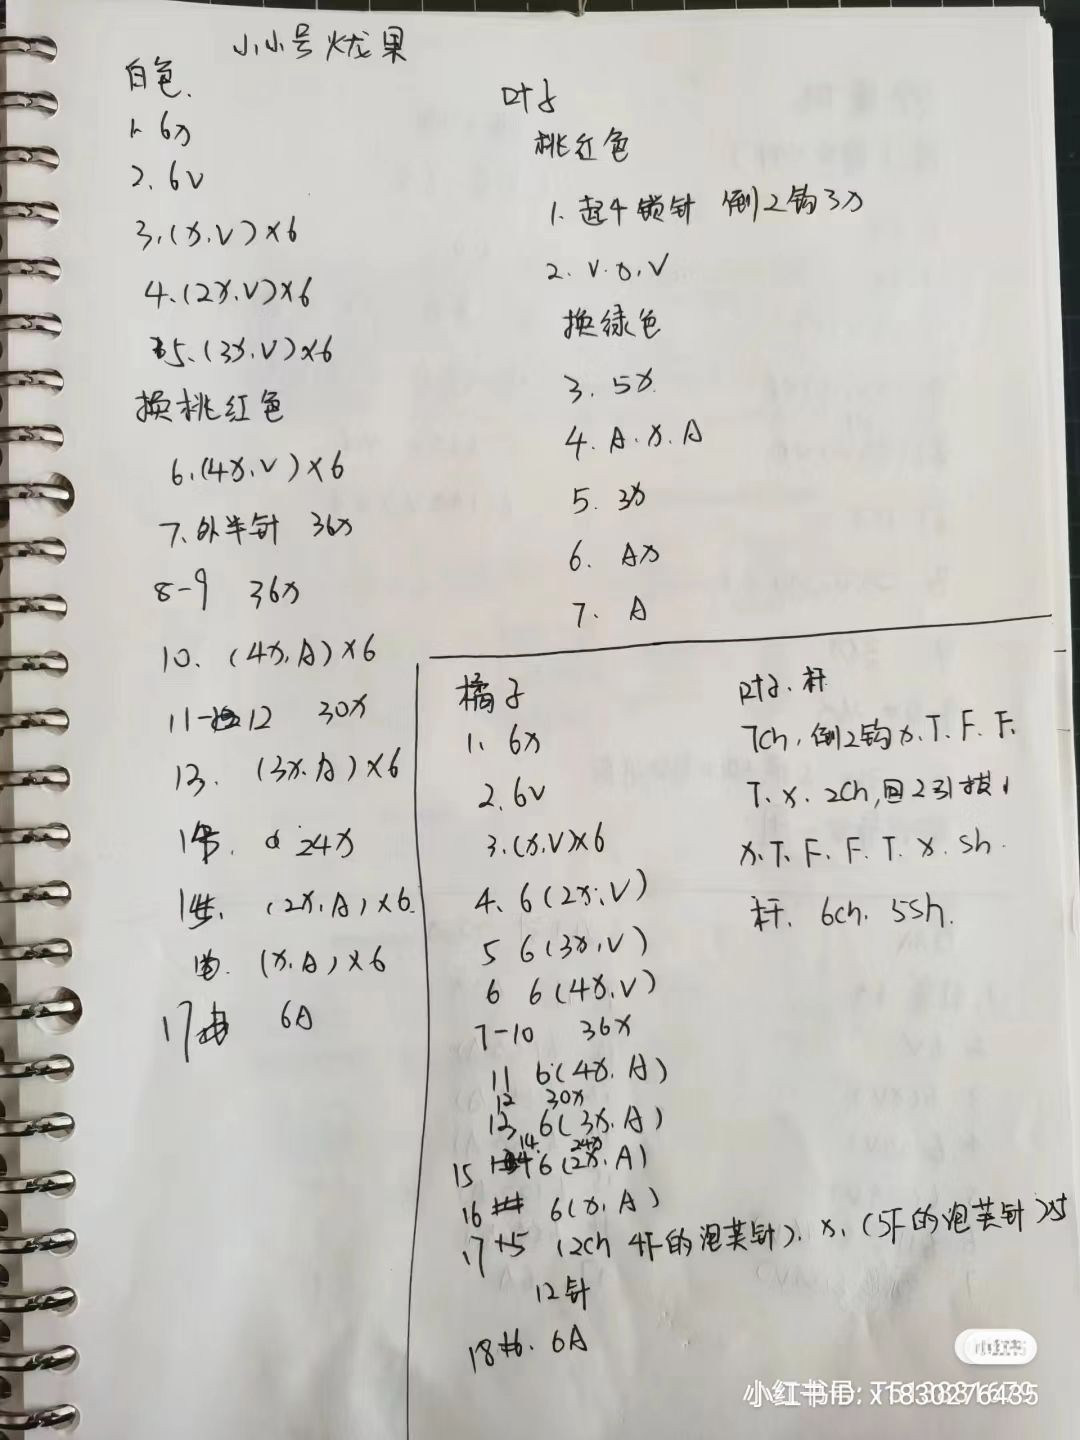 小小号火龙果
白色.
1. 6x
2. 6V
3.(x.V)×6
4.(2x.V)×6
5.(3x.V)×6
换桃红色
6.(4x.V)×6
7.外半针 36x
8-9 36x
10. (4x.A)×6
11-12 30x
13. (3x.A)×6
24x
(2x.A)×6.
(x.A)×6
17 6A
叶子
桃红色
1. 起4锁针 倒2钩3x
2. V.x.V
换绿色
3. 5x
4. A.x.A
5. 3x
6. Ax
7. A
橘子
1. 6x
2. 6V
3.(x.V)×6
4. 6(2x.V)
5 6(3x.V)
6 6(4x.V)
7-10 36x
11 6(4x.A)
12 30x
13 6(3x.A)
14 24x
15 6(2x.A)
16 6(x.A)
17 (2ch 4F的泡芙针). x. (5F的泡芙针)x5
12针
18 6A
叶子.杆
7ch, 倒2钩x.T.F.F.
T.x. 2ch,回2引拔1
x.T.F.F.T.x.Sh.
杆. 6ch. 5Sh.
小红书